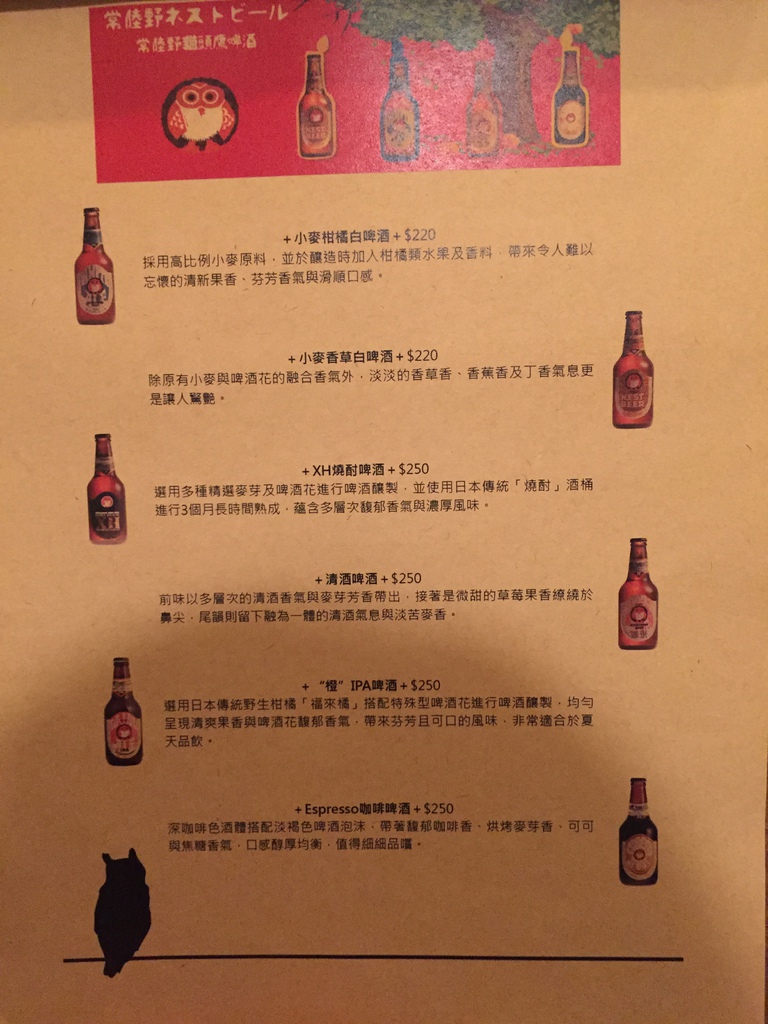 常陸野ネストビール
常陸野貓頭鷹啤酒
+小麥柑橘白啤酒+$220
採用高比例小麥原料，並於釀造時加入柑橘類水果及香料，帶來令人難以
忘懷的清新果香、芬芳香氣與滑順口感。
+小麥香草白啤酒+$220
除原有小麥與啤酒花的融合香氣外，淡淡的香草香、香蕉香及丁香氣息更
是讓人驚艷。
NEST
BEER
+XH燒酎啤酒+$250
選用多種精選麥芽及啤酒花進行啤酒釀製，並使用日本傳統「燒酎」酒桶
進行3個月長時間熟成，蘊含多層次馥郁香氣與濃厚風味。
XH
+清酒啤酒+$250
前味以多層次的清酒香氣與麥芽芳香帶出，接著是微甜的草莓果香繚繞於
鼻尖，尾韻則留下融為一體的清酒氣息與淡苦麥香。
+“橙”IPA啤酒+$250
選用日本傳統野生柑橘「福來橘」搭配特殊型啤酒花進行啤酒釀製，均勻
呈現清爽果香與啤酒花馥郁香氣，帶來芬芳且可口的風味，非常適合於夏
天品飲。
+Espresso咖啡啤酒+$250
深咖啡色酒體搭配淡褐色啤酒泡沫，帶著馥郁咖啡香、烘烤麥芽香、可可
與焦糖香氣，口感醇厚均衡，值得細細品嚐。